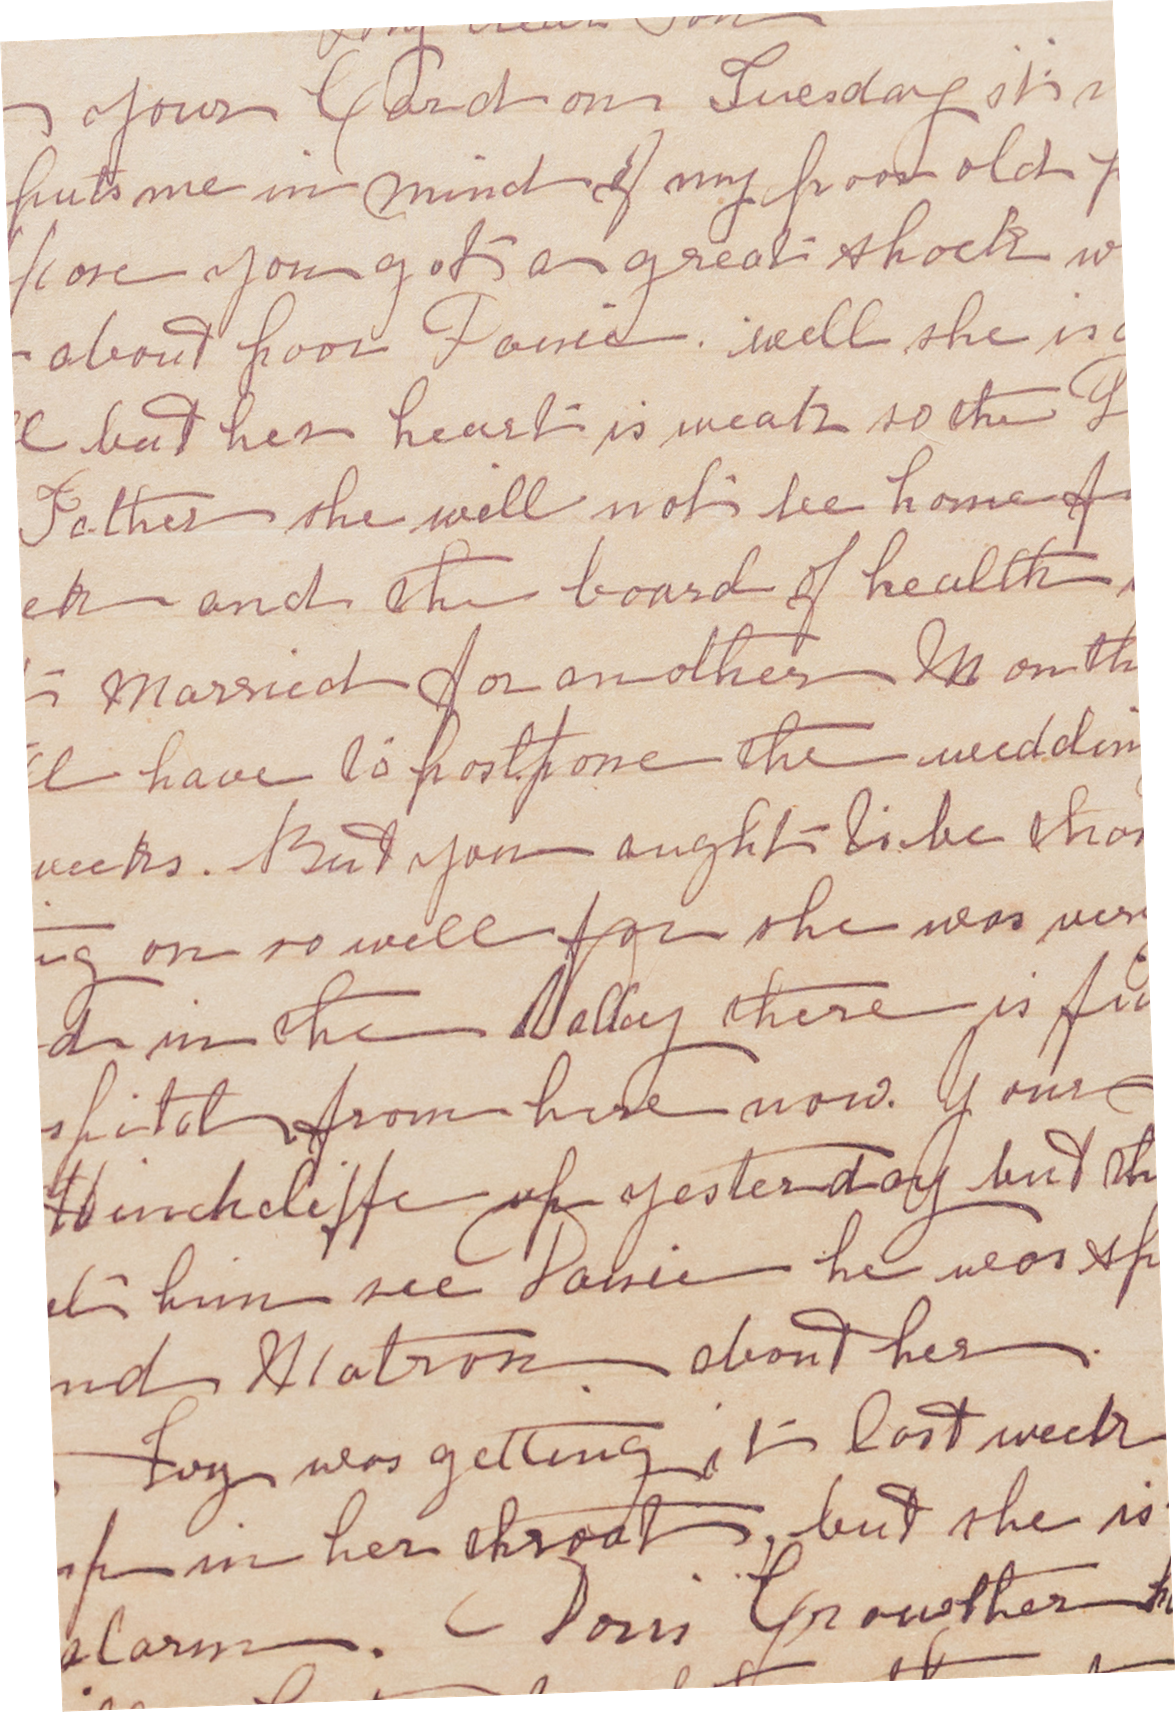 My dear Son
your Card on Tuesday it
puts me in mind of my poor old
pose you got a great shock w
about poor Pansie. well she is
ll but her heart is weak so the
Father she will not be home f
ek and the board of health
t married for another Month
ll have to postpone the weddin
weeks. But you aught to be than
ng on so well for she was very
d in the Valley there is fi
spital from here now. Your
Hinchcliffe up yesterday but th
et him see Pansie he was sp
nd Matron about her.
Ivy was getting it last week
up in her throat, but she is
alarm. Doris Crowther h